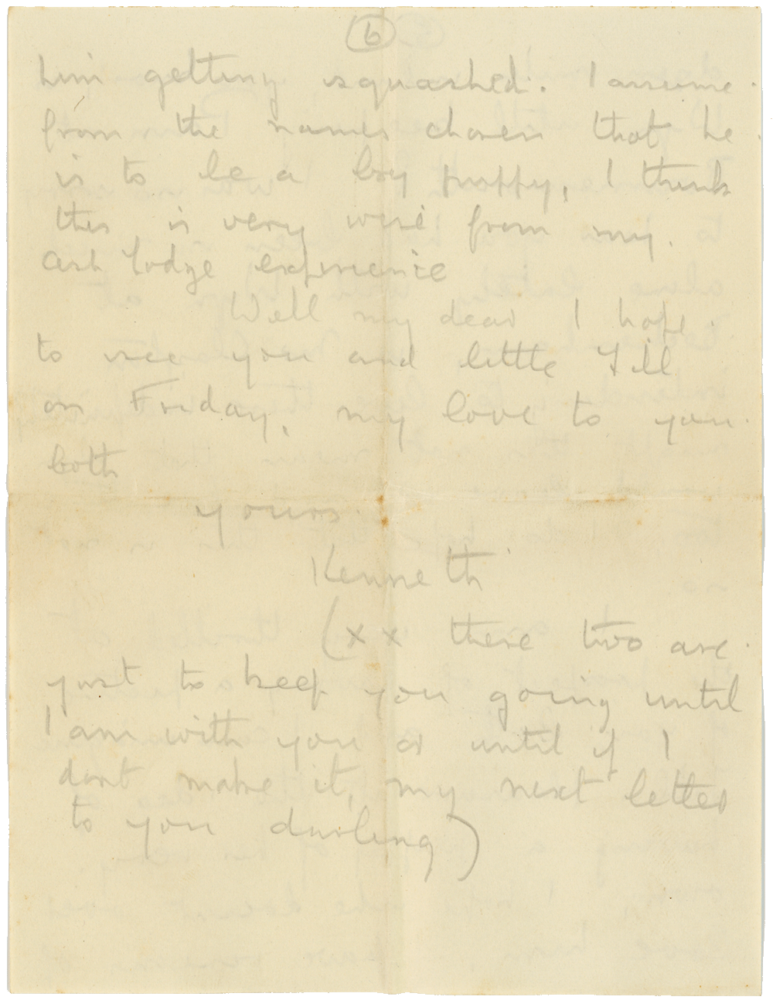 6
him getting squashed. I assume
from the names chosen that he
is to be a boy puppy, I think
this is very wise from my
Ash Lodge experience
Well my dear I hope
to see you and little Jill
on Friday, my love to you
both
yours
Kenneth
(x x these two are
just to keep you going until
I am with you or until if I
dont make it, my next letter
to you darling)